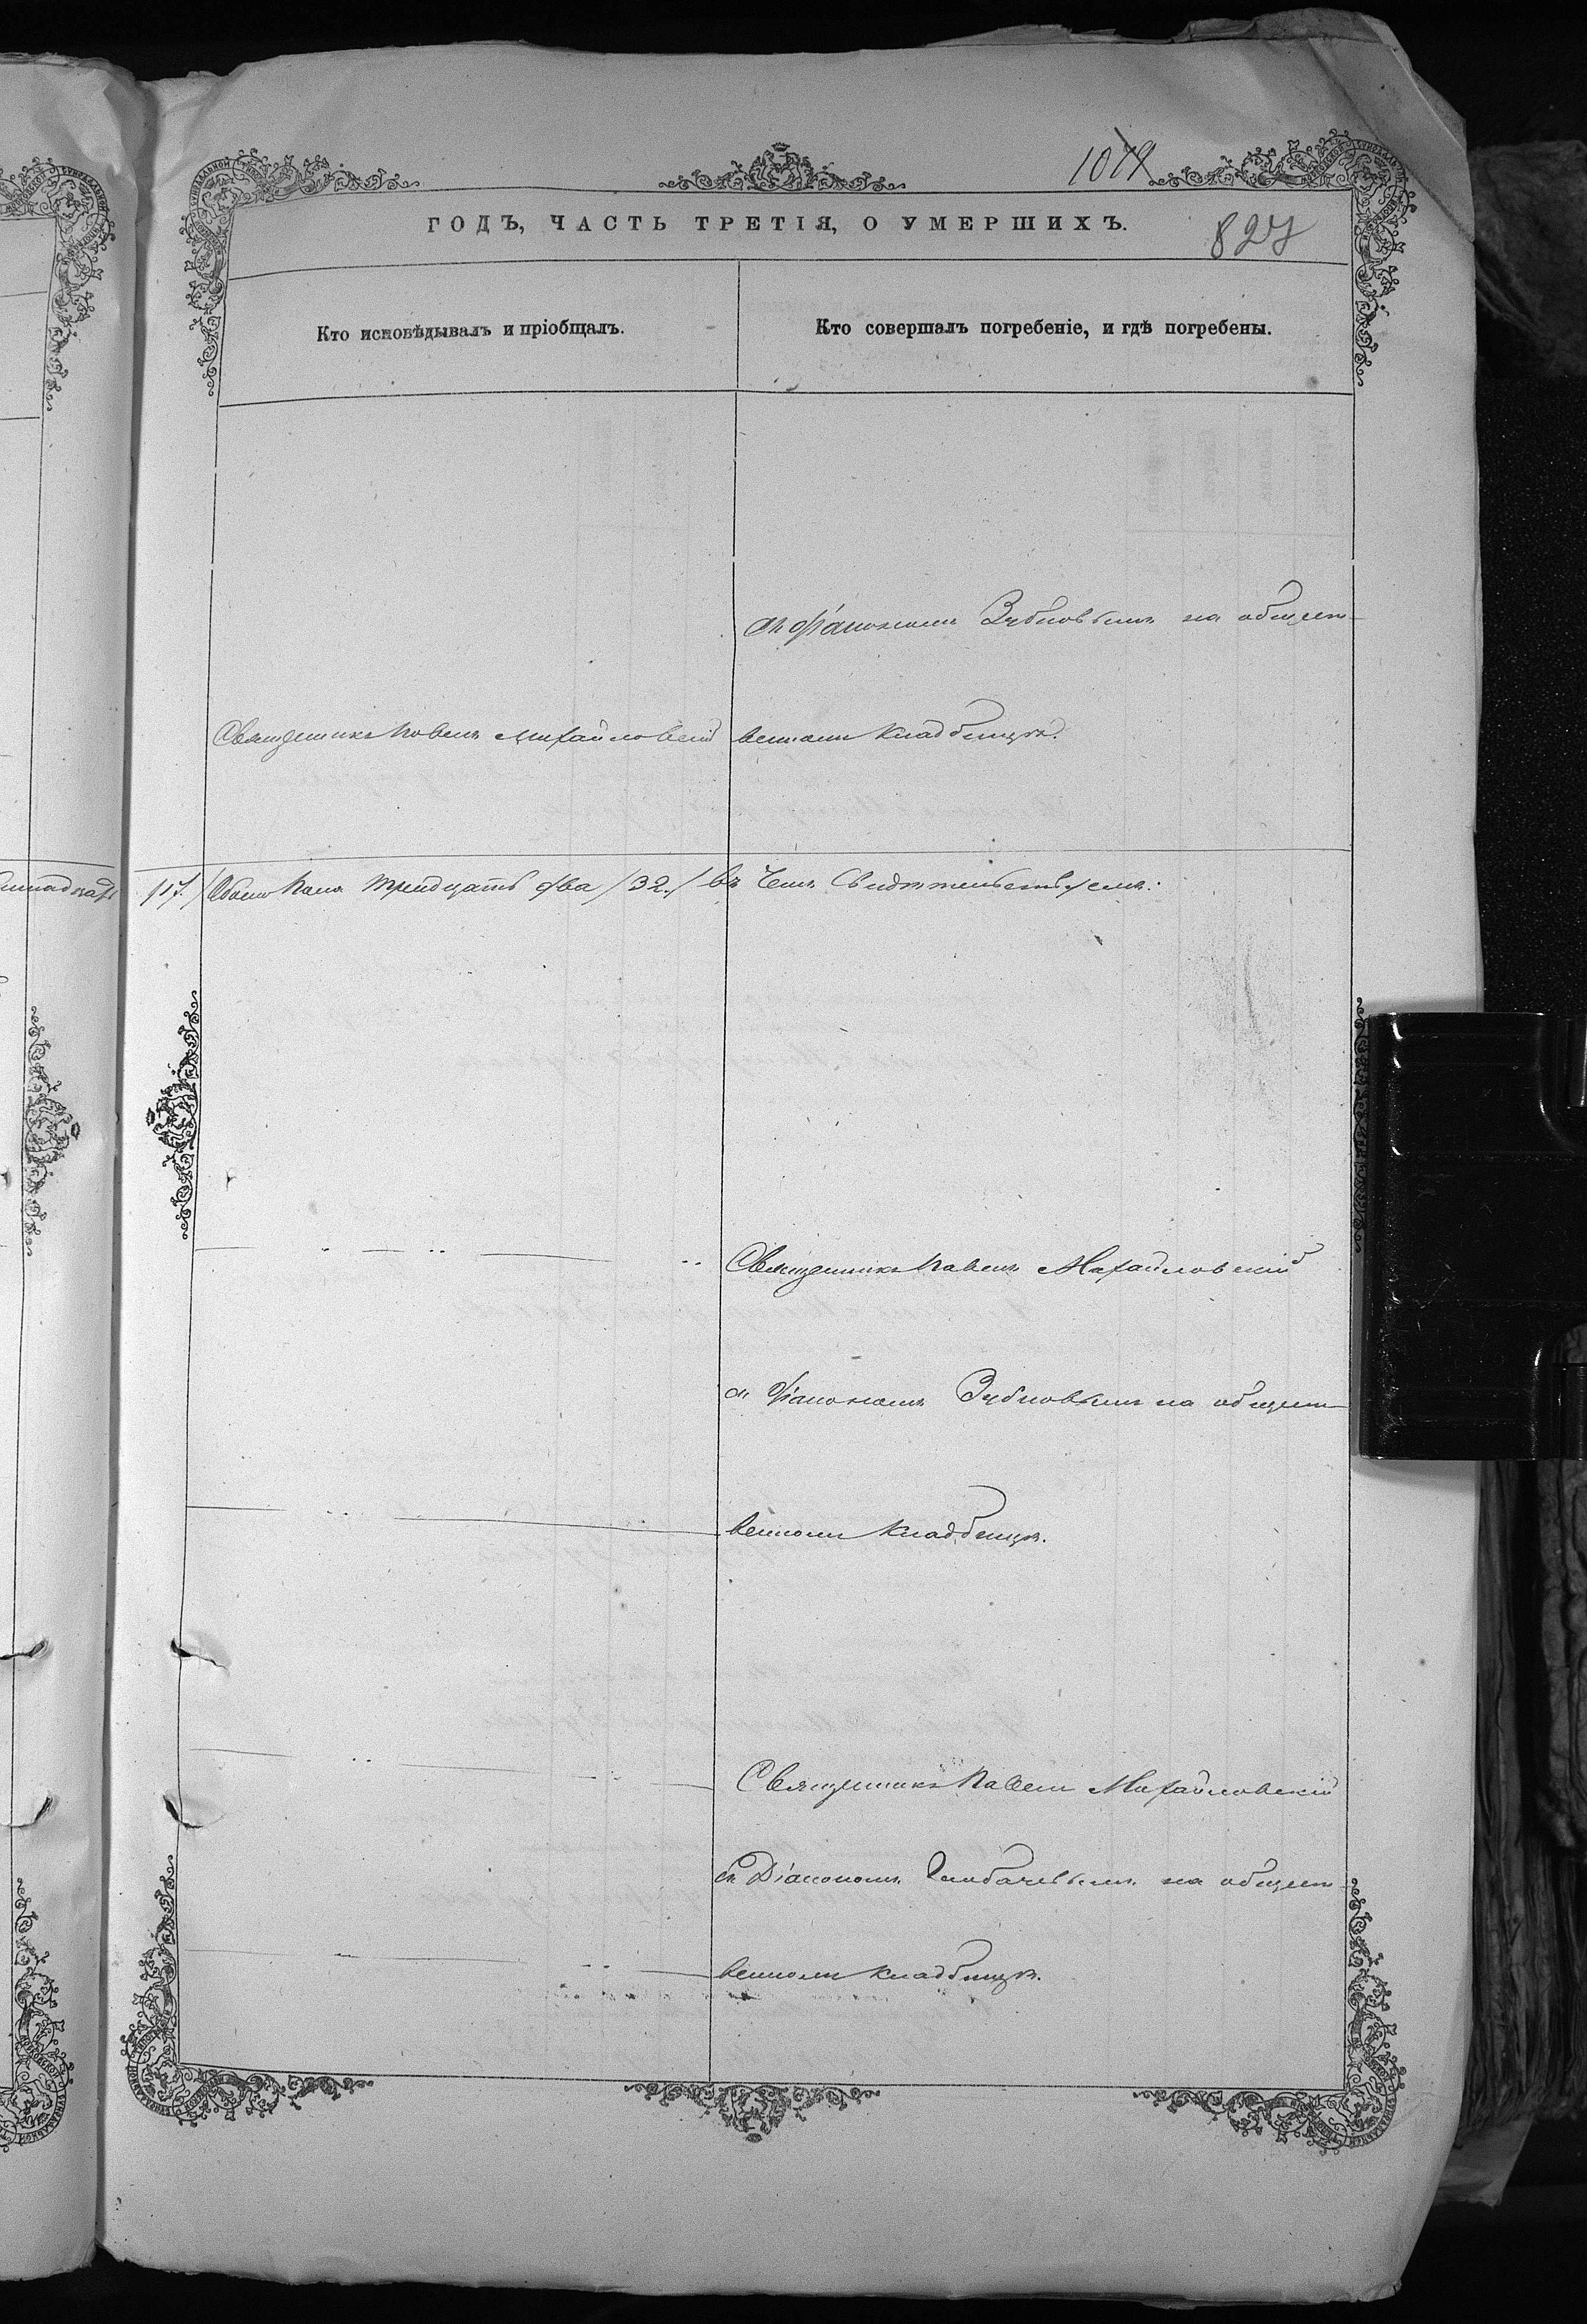 1079
ГОДЪ, ЧАСТЬ ТРЕТІЯ, О УМЕРШИХЪ.
827
Кто исповѣдывалъ и пріобщалъ.
Кто совершалъ погребеніе, и гдѣ погребены.
съ Діакономъ Зубковымъ на общест-
Священникъ Павелъ Михайловскій
венномъ кладбищѣ.
17./ Обоего пола тридцать два /32./ въ чемъ свидѣтельствуемъ:
Священникъ Павелъ Михайловскій
съ Діакономъ Зубковымъ на общест-
венномъ кладбищѣ.
Священникъ Павелъ Михайловскій
съ Діакономъ на общест-
венномъ кладбищѣ.